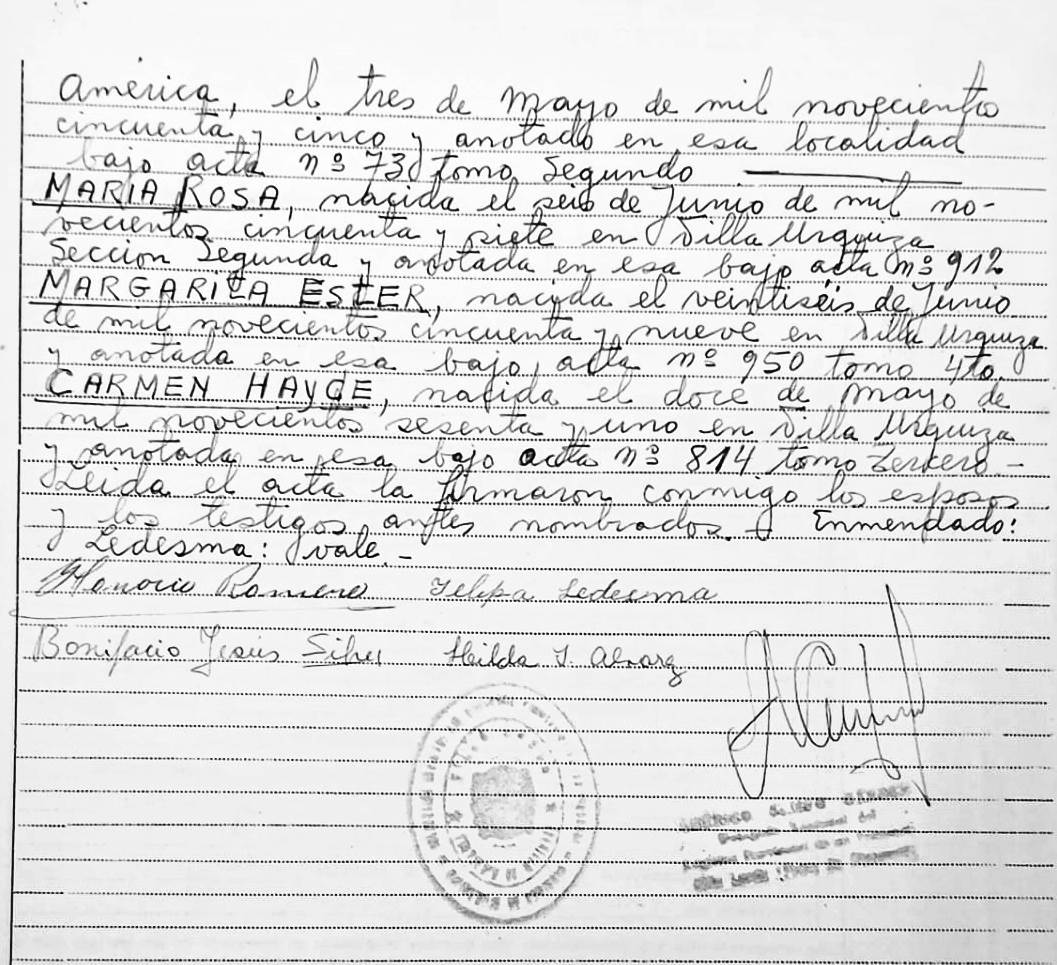 América, el tres de Mayo de mil novecientos
cincuenta y cinco y anotado en esa localidad
bajo acta nº 73 tomo Segundo
MARIA ROSA, nacida el seis de Junio de mil no-
vecientos cincuenta y siete en Villa Urquiza
Sección Segunda y anotada en esa bajo acta nº 912
MARGARITA ESTER, nacida el veintiséis de Junio
de mil novecientos cincuenta y nueve en Villa Urquiza
y anotada en esa bajo acta nº 950 tomo 4to.
CARMEN HAYDE, nacida el doce de Mayo de
mil novecientos sesenta y uno en Villa Urquiza
y anotada en esa bajo acta nº 814 tomo tercero -
Leida el acta la firmaron conmigo los esposos
y los testigos antes nombrados. - Enmendado:
Ledesma: vale. -
Honorio Romero Felipa Ledesma
Bonifacio Jesús Hilda J.